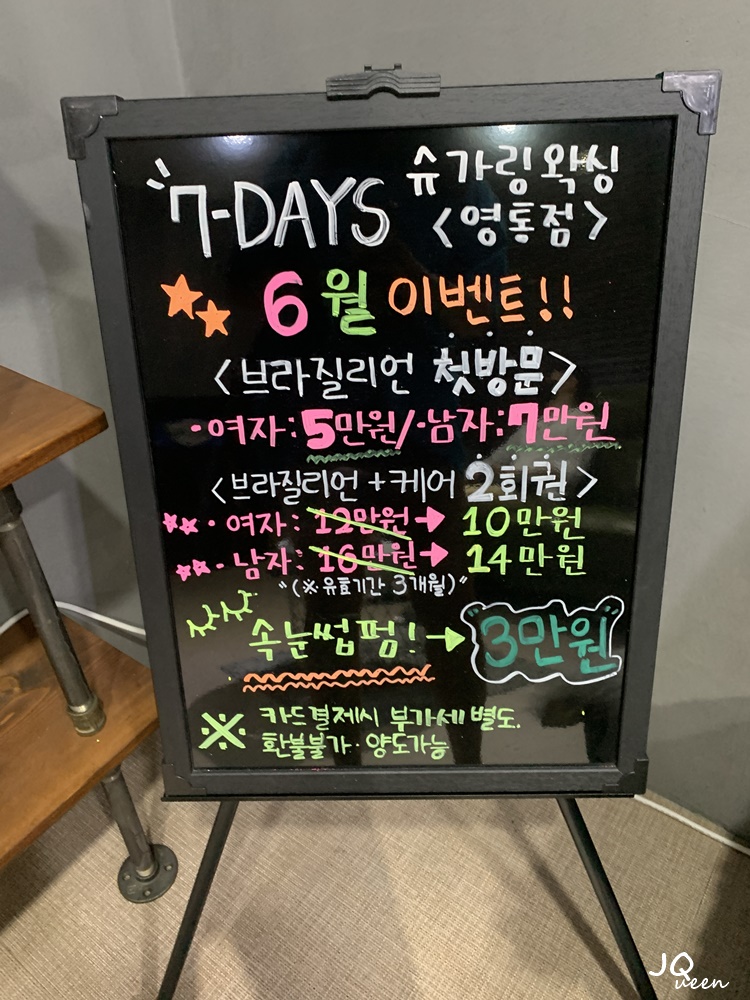 7-DAYS 슈가링왁싱
<영통점>
6월 이벤트!!
<브라질리언 첫방문>
·여자:5만원/·남자:7만원
<브라질리언+케어 2회권>
·여자: 12만원→ 10만원
·남자: 16만원→ 14만원
"(※유효기간 3개월)"
속눈썹펌!→ "3만원"
※ 카드결제시 부가세 별도.
환불불가·양도가능
JQueen